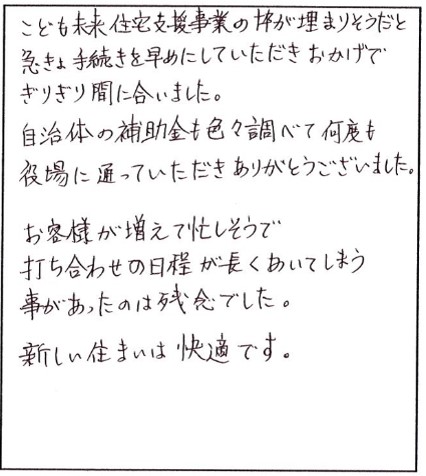 こども未来住宅支援事業の枠が埋まりそうだと
急きょ手続きを早めにしていただきおかげで
ぎりぎり間に合いました。
自治体の補助金も色々調べて何度も
役場に通っていただきありがとうございました。
お客様が増えて忙しそうで
打ち合わせの日程が長くあいてしまう
事があったのは残念でした。
新しい住まいは快適です。